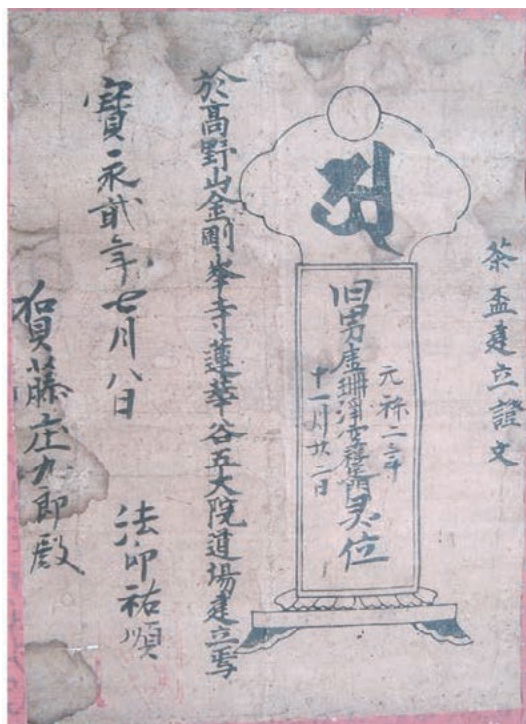 茶盃建立證文
元祢二年
旧男虚珊淨雲禪門灵位
十一月廿二日
於高野山金剛峯寺蓮華谷五大院道場建立焉
寳永貳年七月八日
法印祐順
賀藤庄九郎殿